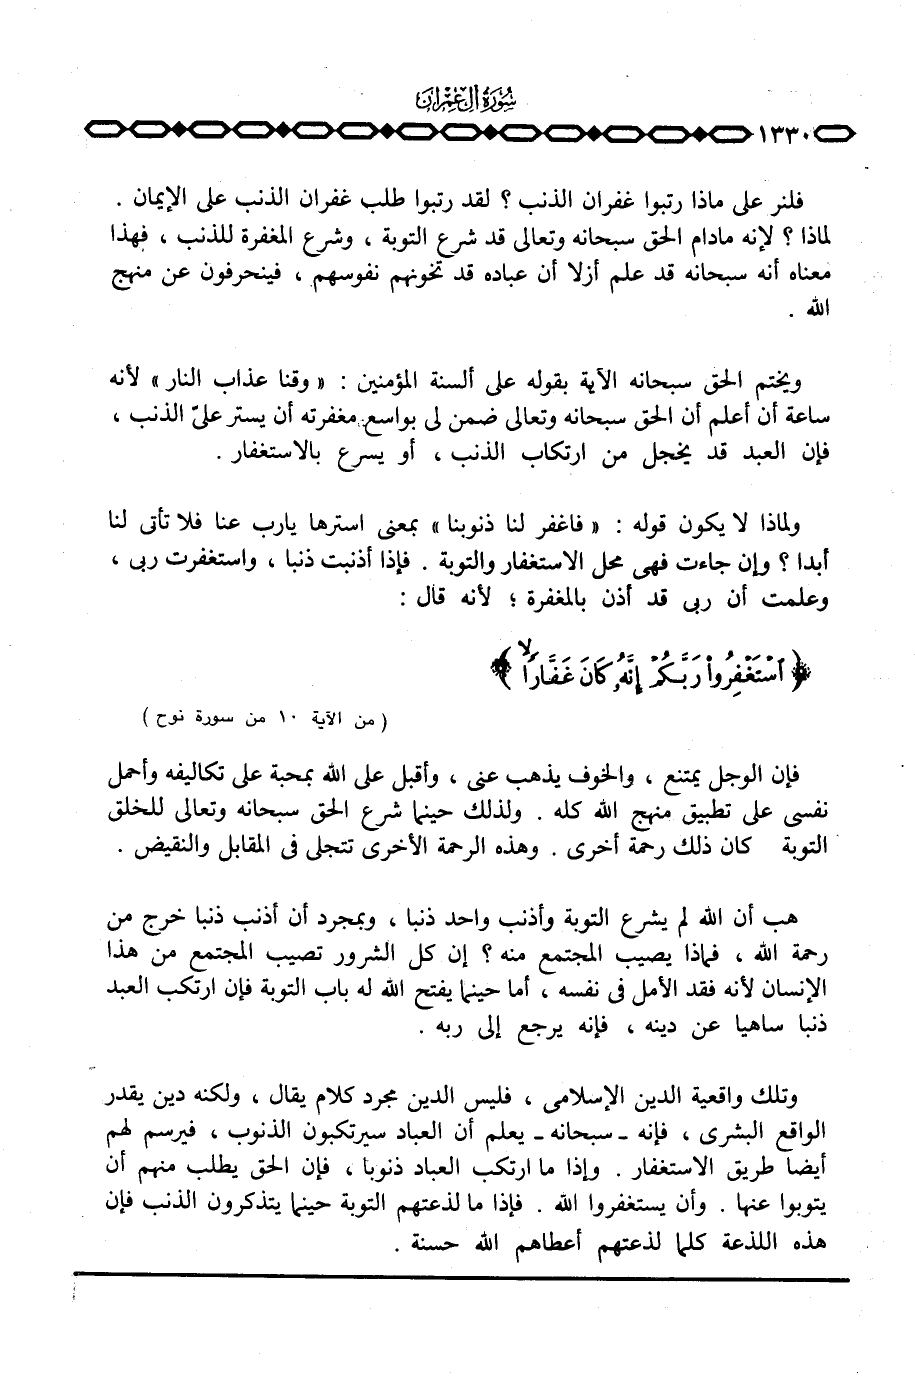 سورة آل عمران
١٣٣٠
فلنر على ماذا رتبوا غفران الذنب ؟ لقد رتبوا طلب غفران الذنب على الإيمان .
لماذا ؟ لإنه مادام الحق سبحانه وتعالى قد شرع التوبة ، وشرع المغفرة للذنب ، فهذا
معناه أنه سبحانه قد علم أزلا أن عباده قد تخونهم نفوسهم ، فينحرفون عن منهج
الله .
ويختم الحق سبحانه الآية بقوله على ألسنة المؤمنين : « وقنا عذاب النار » لأنه
ساعة أن أعلم أن الحق سبحانه وتعالى ضمن لى بواسع مغفرته أن يستر علىّ الذنب ،
فإن العبد قد يخجل من ارتكاب الذنب ، أو يسرع بالاستغفار .
ولماذا لا يكون قوله : « فاغفر لنا ذنوبنا » بمعنى استرها يارب عنا فلا تأتى لنا
أبدا ؟ وإن جاءت فهى محل الاستغفار والتوبة . فإذا أذنبت ذنبا ، واستغفرت ربى ،
وعلمت أن ربى قد أذن بالمغفرة ؛ لأنه قال :
﴿ ٱسْتَغْفِرُوا۟ رَبَّكُمْ إِنَّهُۥ كَانَ غَفَّارًاۙ ﴾
( من الآية ١٠ من سورة نوح )
فإن الوجل يمتنع ، والخوف يذهب عنى ، وأقبل على الله بمحبة على تكاليفه وأحمل
نفسى على تطبيق منهج الله كله . ولذلك حينما شرع الحق سبحانه وتعالى للخلق
التوبة كان ذلك رحمة أخرى . وهذه الرحمة الأخرى تتجلى فى المقابل والنقيض .
هب أن الله لم يشرع التوبة وأذنب واحد ذنبا ، وبمجرد أن أذنب ذنبا خرج من
رحمة الله ، فماذا يصيب المجتمع منه ؟ إن كل الشرور تصيب المجتمع من هذا
الإنسان لأنه فقد الأمل فى نفسه ، أما حينما يفتح الله له باب التوبة فإن ارتكب العبد
ذنبا ساهيا عن دينه ، فإنه يرجع إلى ربه .
وتلك واقعية الدين الإسلامى ، فليس الدين مجرد كلام يقال ، ولكنه دين يقدر
الواقع البشرى ، فإنه ـ سبحانه ـ يعلم أن العباد سيرتكبون الذنوب ، فيرسم لهم
أيضا طريق الاستغفار . وإذا ما ارتكب العباد ذنوبا ، فإن الحق يطلب منهم أن
يتوبوا عنها . وأن يستغفروا الله . فإذا ما لذعتهم التوبة حينما يتذكرون الذنب فإن
هذه اللذعة كلما لذعتهم أعطاهم الله حسنة .